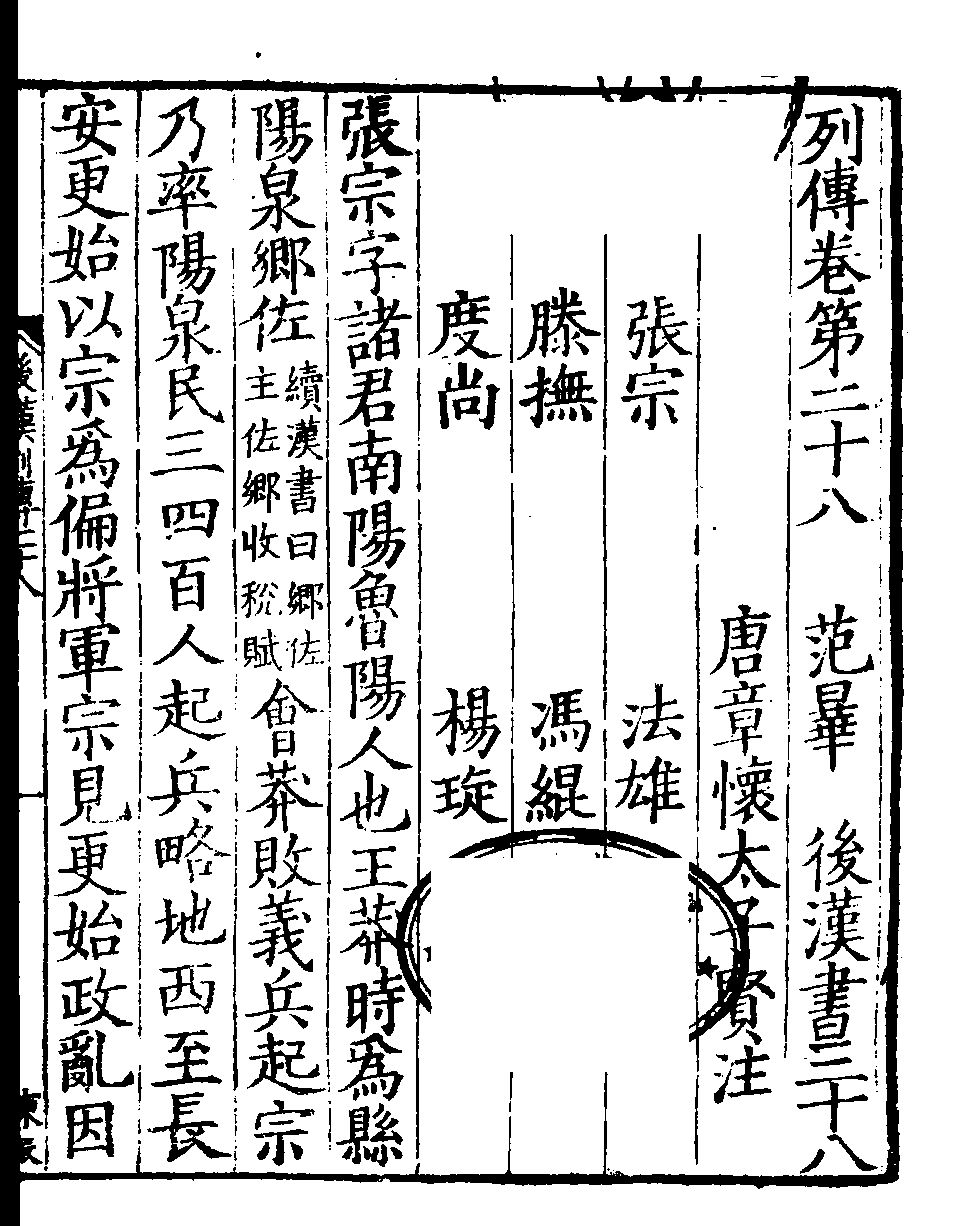 列傳卷第二十八 范曄 後漢書三十八
唐章懷太子賢注
張宗 法雄
滕撫 馮緄
度尚 楊琁
張宗字諸君南陽魯陽人也王莽時爲縣
陽泉鄉佐續漢書曰鄉佐主佐鄉收稅賦會莽敗義兵起宗
乃率陽泉民三四百人起兵略地西至長
安更始以宗爲偏將軍宗見更始政亂因
後漢列傳二十八